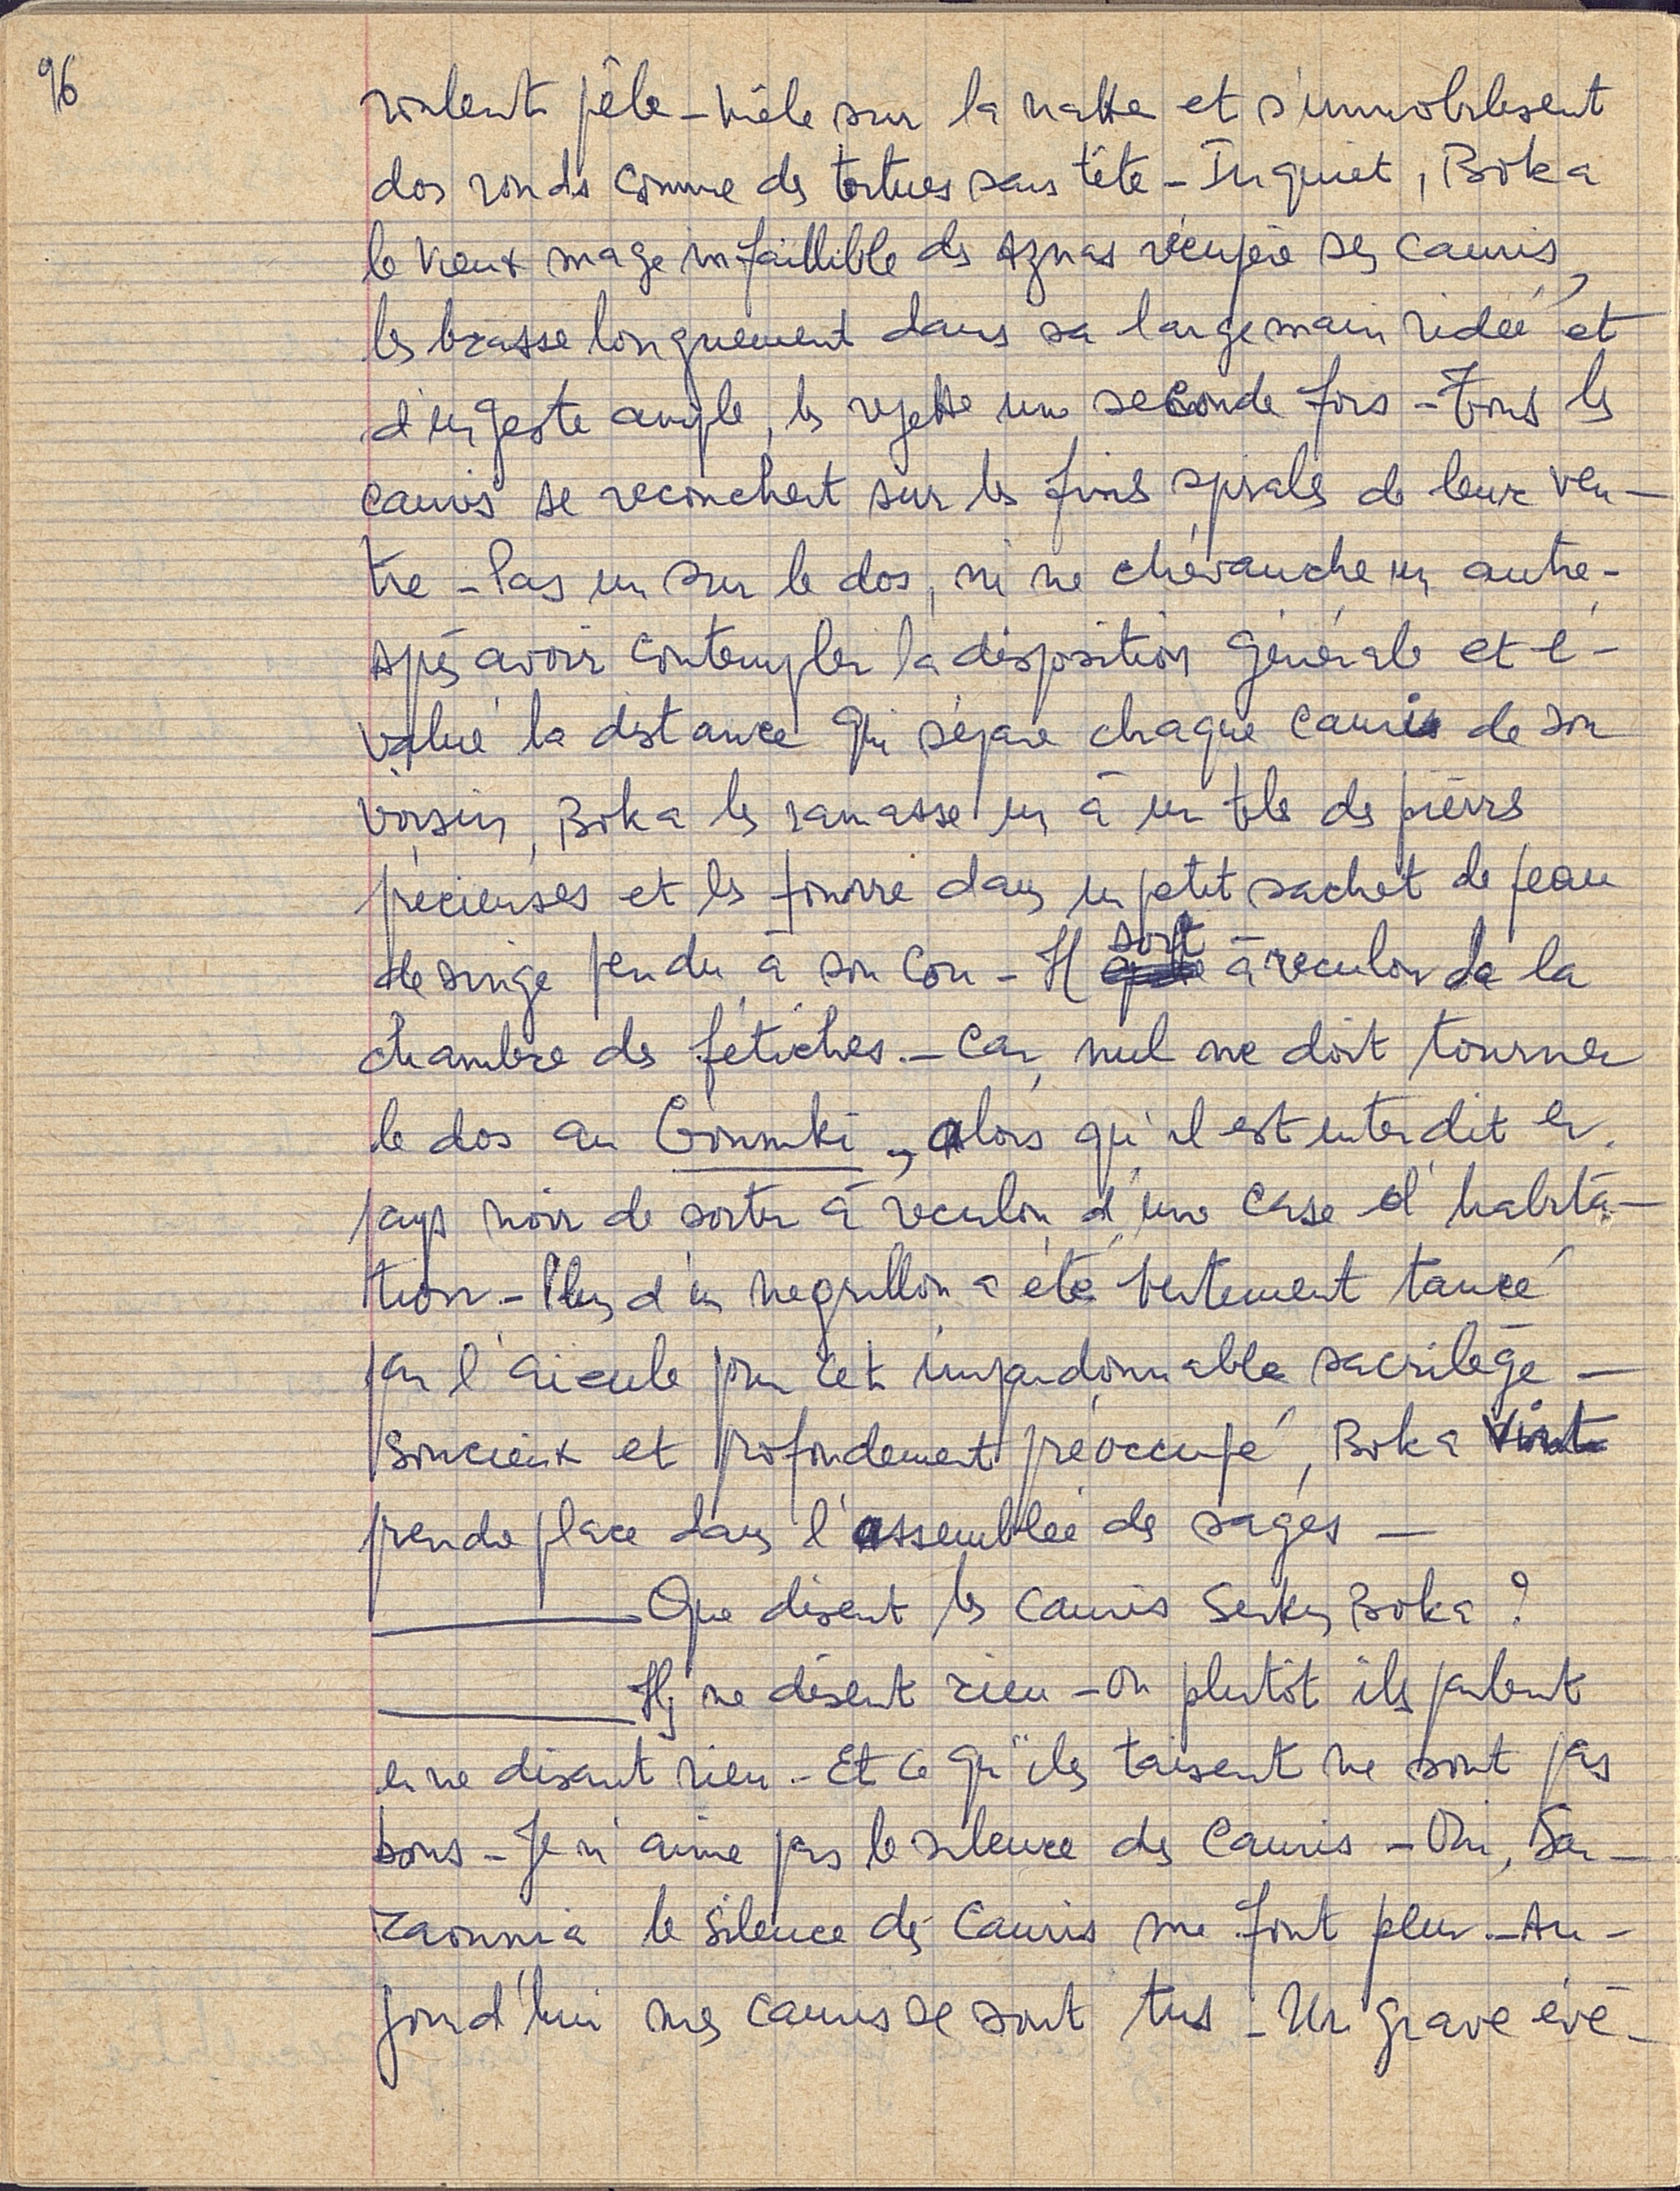 96
roulent pêle-mêle sur la natte et s'immobilisent
dos ronds comme des tortues sans tête - Inquiet, Boka
le vieux mage infaillible des Aznas récupère ses cauris,
les brasse longuement dans sa large main ridée et
d'un geste ample, les rejette une seconde fois - Tous les
cauris se recouchent sur les fines spirales de leur ven-
tre - Pas un sur le dos, ni ne chevauche un autre -
Après avoir contempler la disposition générale et é-
valué la distance qui sépare chaque cauris de son
voisin, Boka les ramasse un à un tels des pierres
précieuses et les fourre dans un petit sachet de peau
de singe pendu à son cou - Il sort à reculons de la
chambre des fétiches. - Car, nul ne doit tourner
le dos au Gounki, alors qu'il est interdit en
pays noir de sortir à reculons d'une case d'habita-
tion - Plus d'un negrillon a été vertement tancé
par l'aïeule pour cet impardonnable sacrilège -
Soucieux et profondement préoccupé, Boka vint
prendre place dans l'assemblée des sages -
Que disent les cauris Serkin Boka ?
Ils ne disent rien - Ou plutôt ils parlent
en ne disant rien - Et ce qu'ils taisent ne sont pas
bons - Je n'aime pas le silence des cauris - Oui, Sar-
raounia le silence des cauris me font peur - Au-
jourd'hui mes cauris se sont tus - Un grave évé-